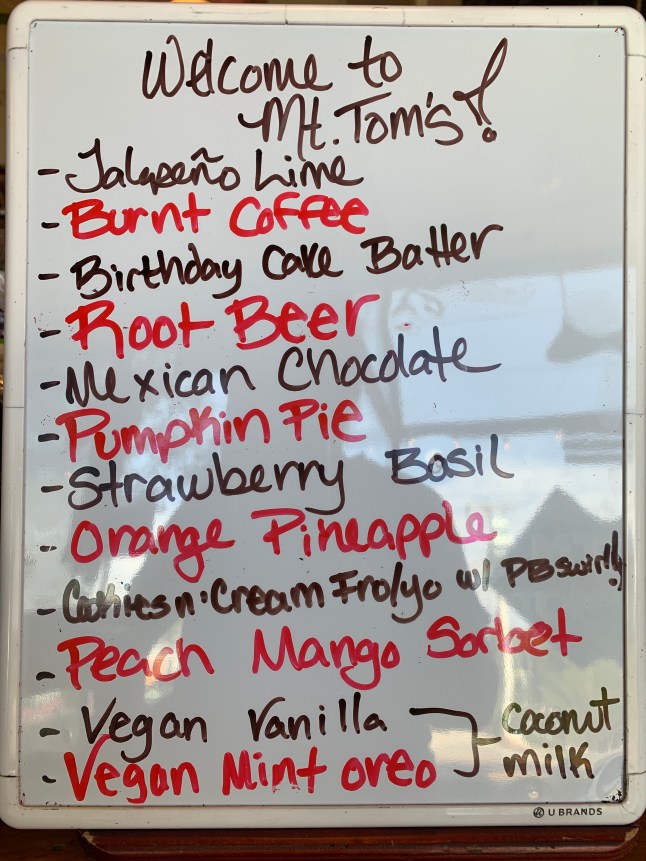 Welcome to
Mt. Tom's!
- Jalapeño Lime
- Burnt Coffee
- Birthday Cake Batter
- Root Beer
- Mexican Chocolate
- Pumpkin Pie
- Strawberry Basil
- Orange Pineapple
- Cookies n' Cream Fro/yo w/ PB swirl!
- Peach Mango Sorbet
- Vegan Vanilla
- Vegan Mint oreo
coconut
milk
U BRANDS